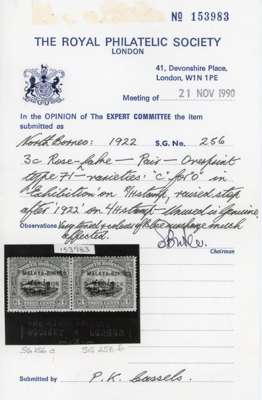 No 153983
THE ROYAL PHILATELIC SOCIETY
LONDON
41, Devonshire Place,
London, W1N 1PE
Meeting of 21 NOV 1990
In the OPINION of The EXPERT COMMITTEE the item
submitted as
North Borneo: 1922 S.G. No. 256
3c Rose-lake - Pair - Overprint
type 71 - varieties: 'C' for 'O' in
'Exhibition' on stamp, raised stop
after '1922' on stamp - Unused is genuine,
Observations
affected.
Chairman
153983
MALAYA-BORNEO MALAYA-BORNEO
SG 256a SG 256b
Submitted by P. K. Cassels.